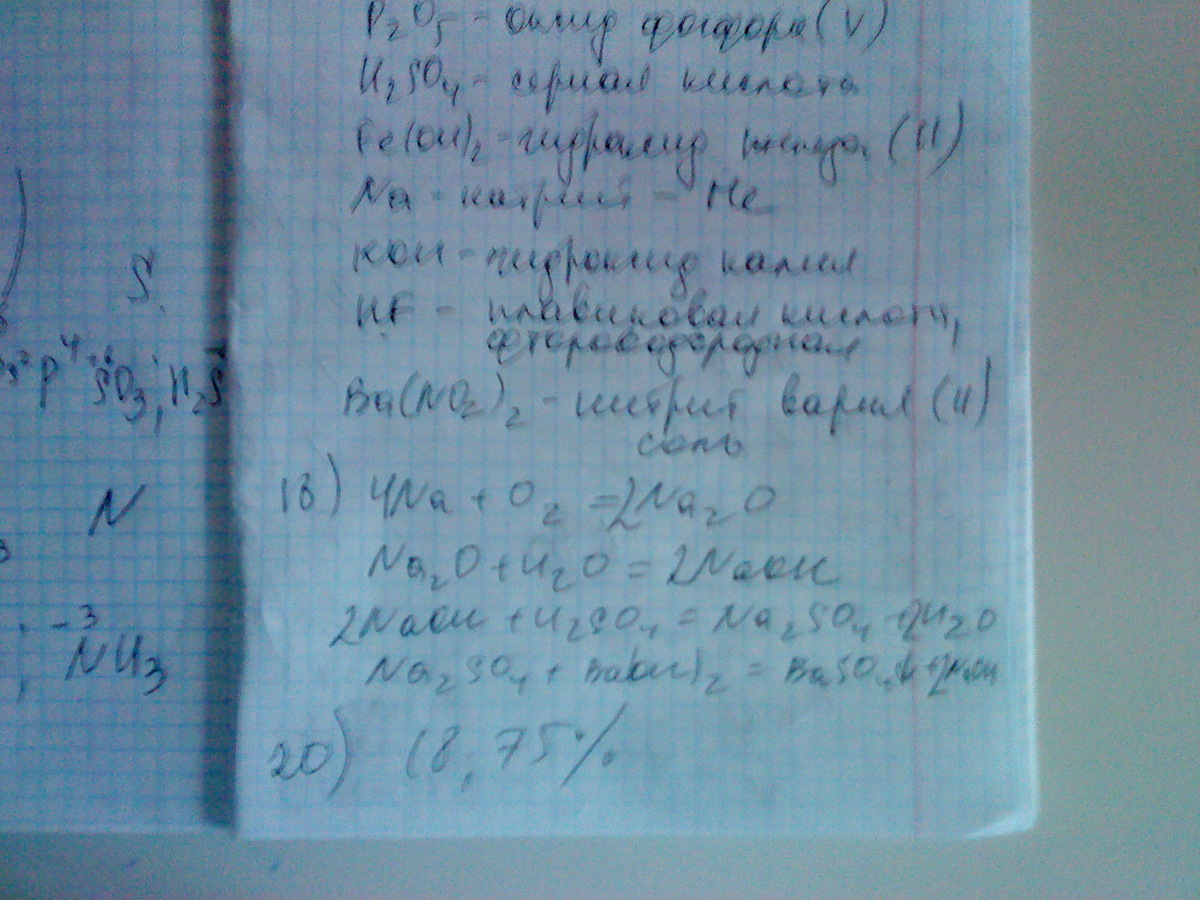 S
p⁴ SO₃, H₂S
N
-3
NH₃
P₂O₅ - оксид фосфора (V)
H₂SO₄ - серная кислота
Fe(OH)₂ - гидроксид железа (II)
Na - натрий - Me
KOH - гидроксид калия
HF - плавиковая кислота,
фтороводородная
Ba(NO₂)₂ - нитрит бария (II)
соль
18) 4Na + O₂ = 2Na₂O
Na₂O + H₂O = 2NaOH
2NaOH + H₂SO₄ = Na₂SO₄ + 2H₂O
Na₂SO₄ + Ba(OH)₂ = BaSO₄↓ + 2NaOH
20) 18,75%